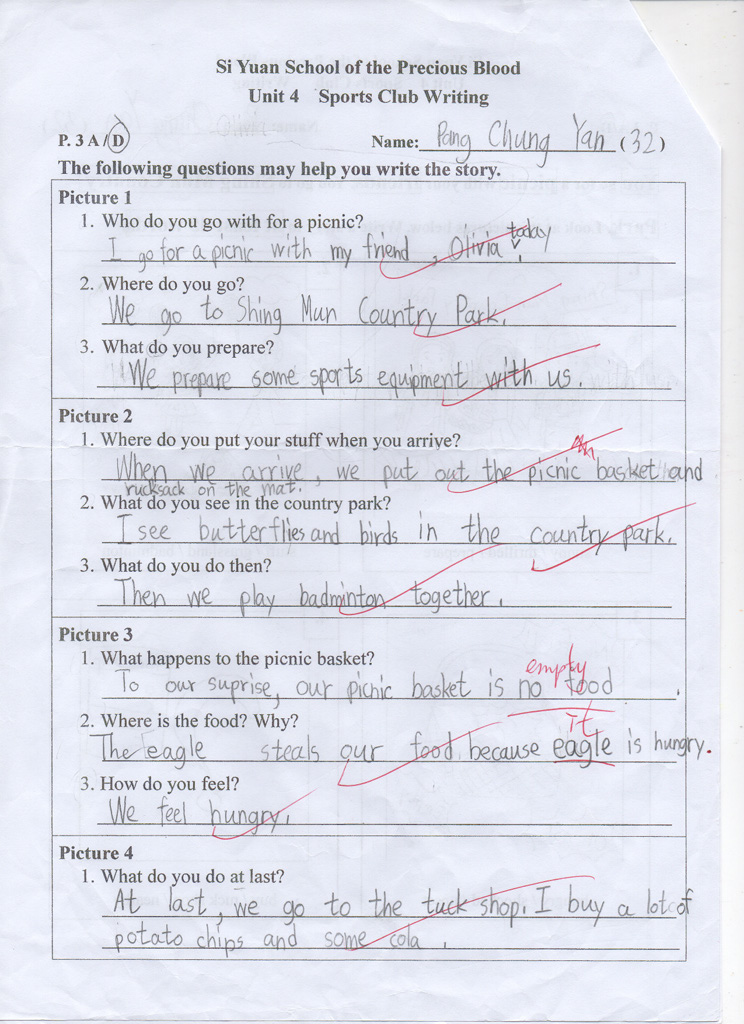 Si Yuan School of the Precious Blood
Unit 4 Sports Club Writing
P. 3 A / D Name: Pang Chung Yan (32)
The following questions may help you write the story.
Picture 1
1. Who do you go with for a picnic?
today
I go for a picnic with my friend, Olivia.
2. Where do you go?
We go to Shing Mun Country Park.
3. What do you prepare?
We prepare some sports equipment with us.
Picture 2
1. Where do you put your stuff when you arrive?
When we arrive, we put out the picnic basket and
rucksack on the mat.
2. What do you see in the country park?
I see butterflies and birds in the country park.
3. What do you do then?
Then we play badminton together.
Picture 3
1. What happens to the picnic basket?
empty
To our suprise, our picnic basket is no food.
2. Where is the food? Why?
it
The eagle steals our food because eagle is hungry.
3. How do you feel?
We feel hungry.
Picture 4
1. What do you do at last?
At last, we go to the tuck shop. I buy a lot of
potato chips and some cola.